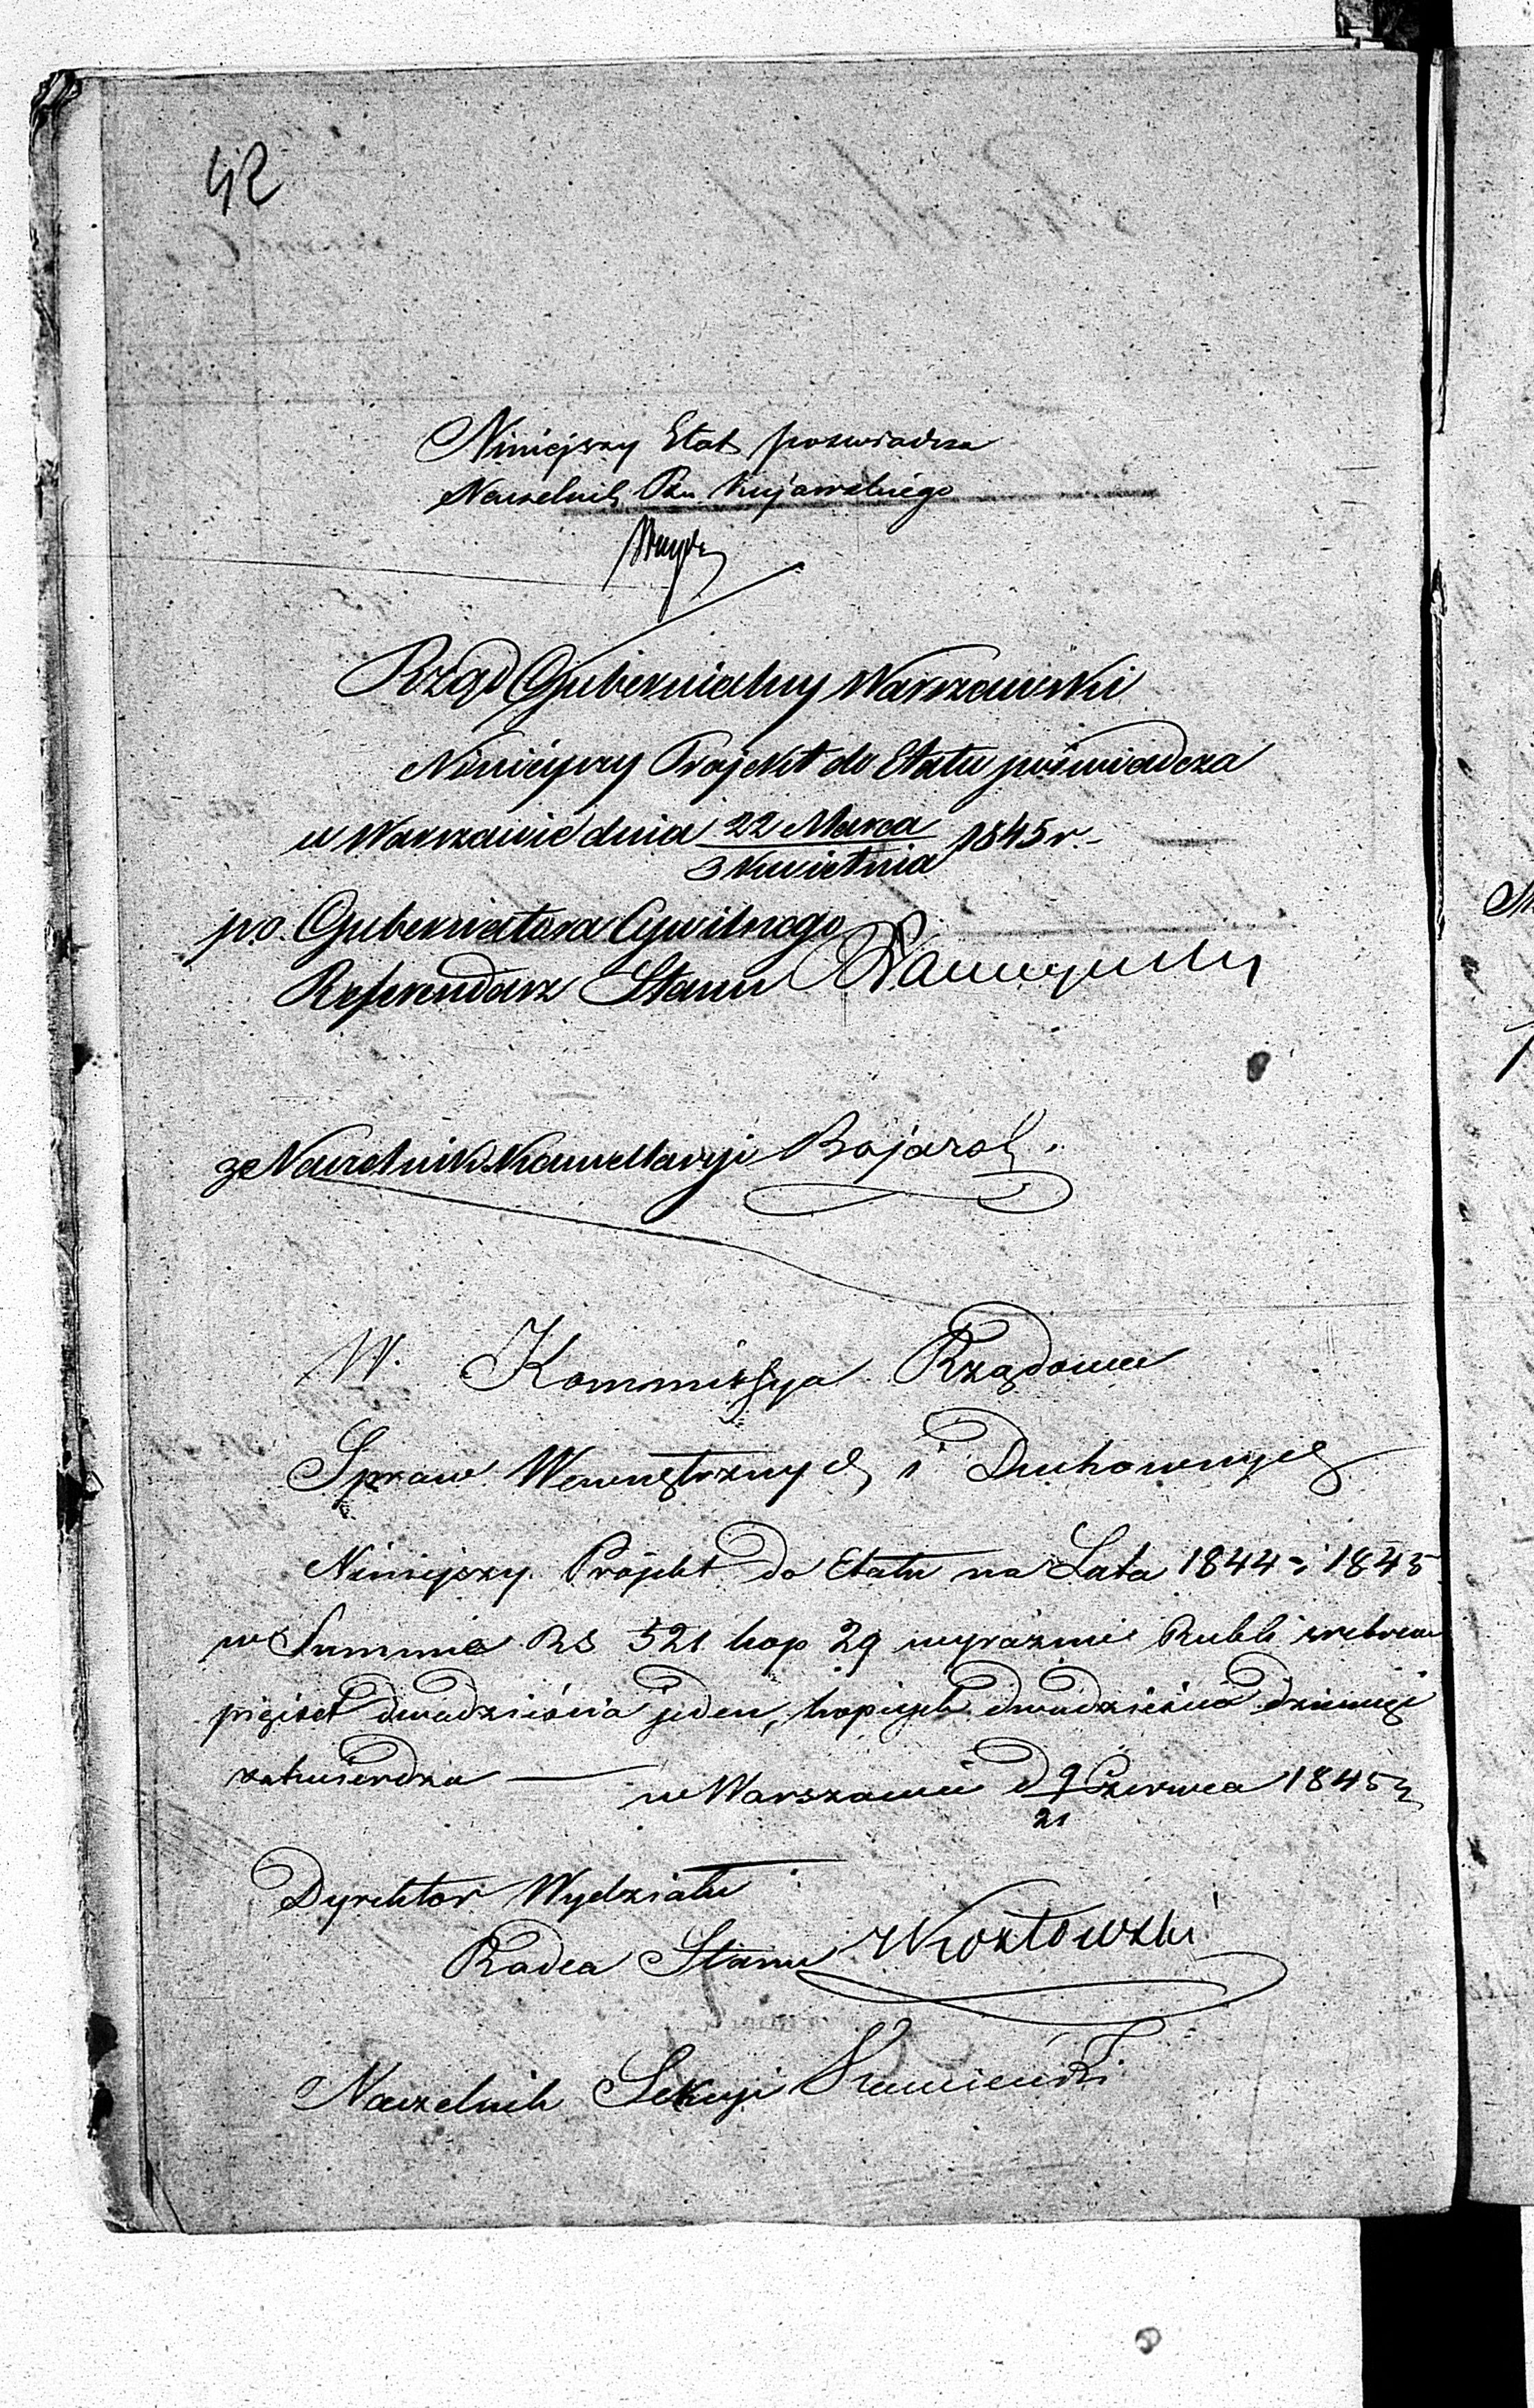 42
Niniejszy Etat poswiadcza
Naczelnik Ptu Kujawskiego
Rząd Gubernialny Warszawski
Niniejszy Projekt do Etatu poświadcza
w Warszawie dnia 22 Marca 1845 r.
3 Kwietnia
p.o. Gubernatora Cywilnego
Referendarz Stanu
za Naczelnik Kancellaryi
W. Kommissya Rządowa
Spraw Wewnętrznych i Duchownych
Niniejszy Projekt do Etatu na Lata 1844 i 1845
w Summie RS 521 kop 29 wyraźnie Rubli srebrem
pięćset dwadzieścia jeden, kopiejek dwadzieścia dziewięć
zatwierdza — w Warszawie d 9 Czerwca 1845 r
21
Dyrektor Wydziału
Radca Stanu
Naczelnik Sekcyi